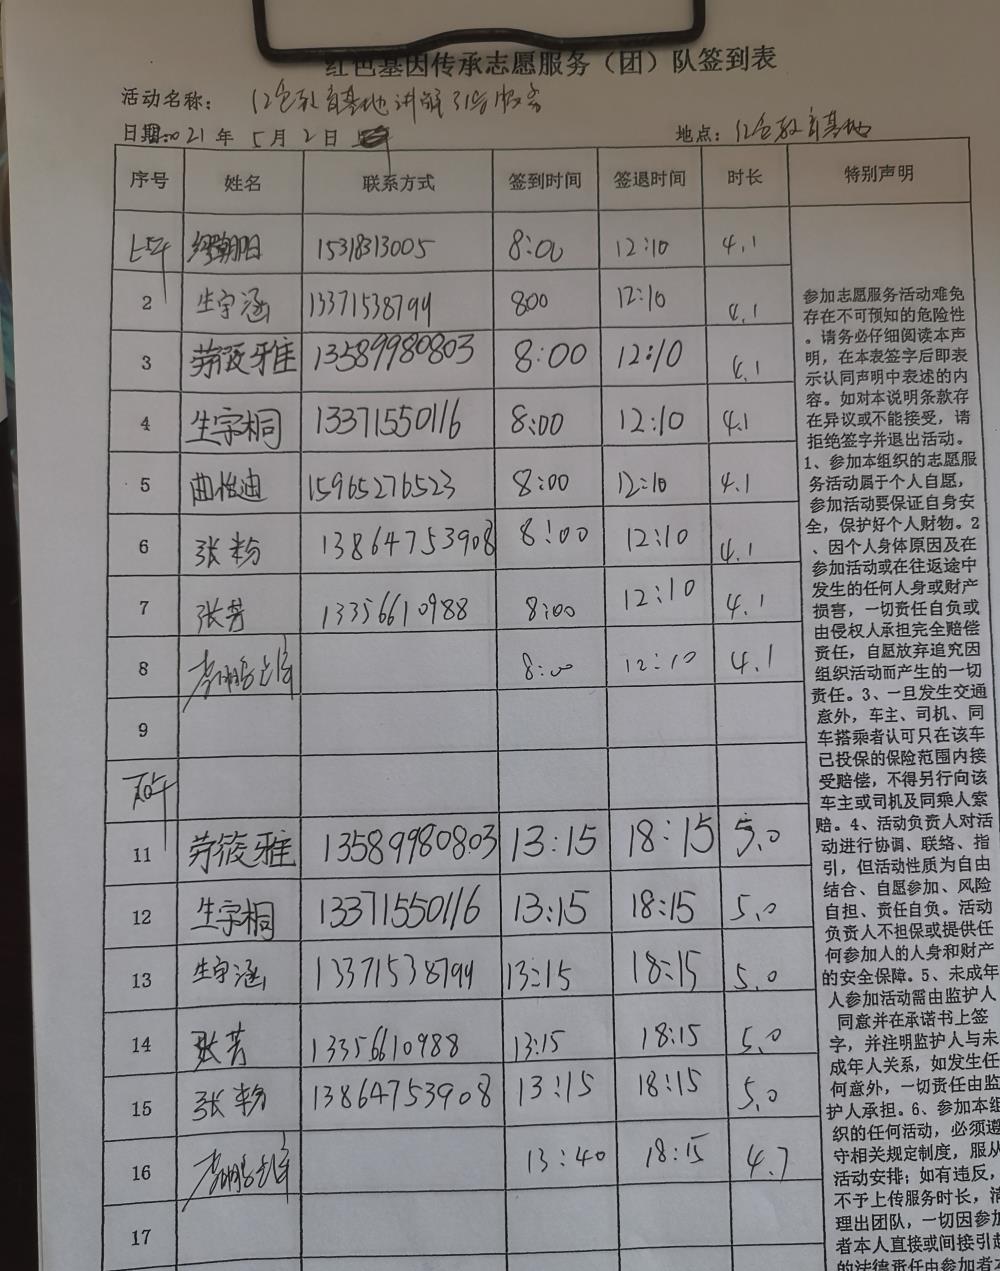 红色基因传承志愿服务（团）队签到表
活动名称： 红色教育基地讲解引导服务
日期：2021年 5月 2日
地点：红色教育基地
序号 姓名 联系方式 签到时间 签退时间 时长 特别声明
上午 朝阳 15318313005 8:00 12:10 4.1
2 生宇涵 13371538799 8:00 12:10 4.1
3 雅 13589980803 8:00 12:10 4.1
4 生宇桐 13371550116 8:00 12:10 4.1
5 曲怡迪 15965276523 8:00 12:10 4.1
6 张粉 13864753908 8:00 12:10 4.1
7 张芳 13356610988 8:00 12:10 4.1
8 8:00 12:10 4.1
9
下午
11 雅 13589980803 13:15 18:15 5.0
12 生宇桐 13371550116 13:15 18:15 5.0
13 生宇涵 13371538799 13:15 18:15 5.0
14 张芳 13356610988 13:15 18:15 5.0
15 张粉 13864753908 13:15 18:15 5.0
16 13:40 18:15 4.7
17
参加志愿服务活动难免
存在不可预知的危险性
。请务必仔细阅读本声
明，在本表签字后即表
示认同声明中表述的内
容。如对本说明条款存
在异议或不能接受，请
拒绝签字并退出活动。
1、参加本组织的志愿服
务活动属于个人自愿，
参加活动要保证自身安
全，保护好个人财物。2
、因个人身体原因及在
参加活动或在往返途中
发生的任何人身或财产
损害，一切责任自负或
由侵权人承担完全赔偿
责任，自愿放弃追究因
组织活动而产生的一切
责任。3、一旦发生交通
意外，车主、司机、同
车搭乘者认可只在该车
已投保的保险范围内接
受赔偿，不得另行向该
车主或司机及同乘人索
赔。4、活动负责人对活
动进行协调、联络、指
引，但活动性质为自由
结合、自愿参加、风险
自担、责任自负。活动
负责人不担保或提供任
何参加人的人身和财产
的安全保障。5、未成年
人参加活动需由监护人
同意并在承诺书上签
字，并注明监护人与未
成年人关系，如发生任
何意外，一切责任由监
护人承担。6、参加本组
织的任何活动，必须遵
守相关规定制度，服从
活动安排；如有违反，
不予上传服务时长，清
理出团队，一切因参加
者本人直接或间接引起
的法律责任由参加者本